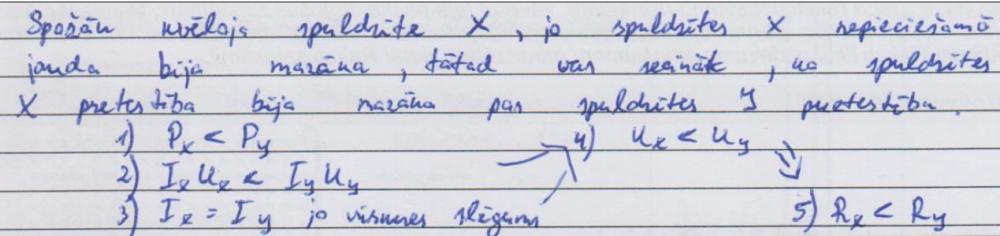 Spožāk kvēloja spuldzīte X, jo spuldzītes X nepieciešamā
jauda bija mazāka, tātad var secināt, ka spuldzītes
X pretestība bija mazāka par spuldzītes Y pretestība.
1) Pₓ < Pᵧ 4) Uₓ < Uᵧ
2) IₓUₓ < IᵧUᵧ
3) Iₓ = Iᵧ jo virknes slēgums 5) Rₓ < Rᵧ